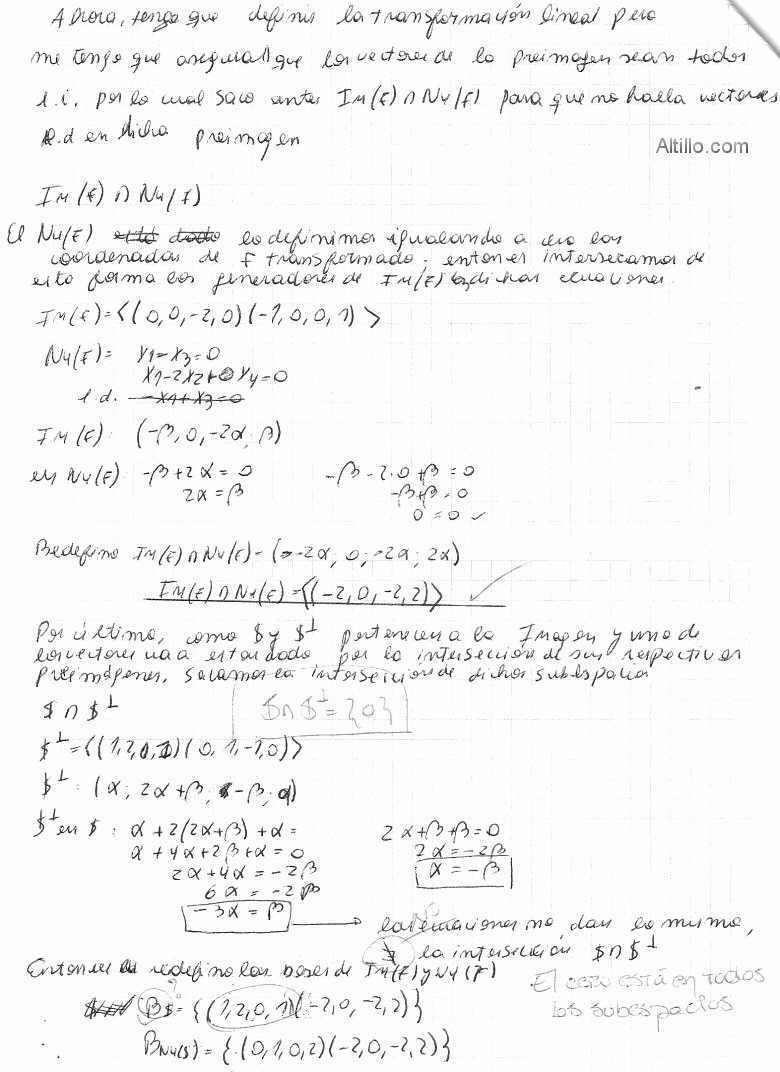 Ahora, tengo que definir la transformación lineal pero
me tengo que asegurar que los vectores de la preimagen sean todos
l.i. por lo cual saco antes Im(f) ∩ Nu(f) para que no halla vectores
l.d en dicha preimagen
Altillo.com
Im(f) ∩ Nu(f)
El Nu(f) está dado lo definimos igualando a cero las
coordenadas de f transformado. entonces intersecamos de
esta forma los generadores de Im(f) dichas ecuaciones.
Im(f)=<(0,0,-2,0)(-1,0,0,1)>
Nu(f)= x1-x3=0
x1-2x2+0x4=0
l.d. -x1+x3=0
Im(f): (-β,0,-2α,β)
en Nu(f) -β+2α=0 -β-2.0+β=0
2α=β -β+β=0
0=0 ✓
Redefino Im(f)∩Nu(f)=(-2α, 0, -2α; 2α)
Im(f)∩Nu(f)=<(-2,0,-2,2)>
Por último, como $ y $⊥ pertenecen a la Imagen y uno de
los vectores va a estar dado por la intersección de sus respectivas
preimágenes, sacamos la intersección de dichos subespacios
$∩$⊥ $∩$⊥={0}
$⊥=<(1,2,0,1)(0,1,-1,0)>
$⊥: (α; 2α+β; -β; α)
$⊥ en $: α+2(2α+β)+α= 2α+β+β=0
α+4α+2β+α=0 2α=-2β
2α+4α=-2β α=-β
6α=-2β
-3α=β → las ecuaciones no dan lo mismo,
No
∄ la intersección $∩$⊥
Entonces redefino las bases de Im(f) y Nu(f)
El cero está en todos
los subespacios
?
B$={(1,2,0,1)(-2,0,-2,2)}
BNu(f)={(0,1,0,2)(-2,0,-2,2)}